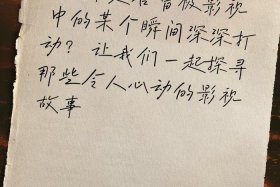 否曾被影视
中的某个瞬间深深打
动？让我们一起探寻
那些令人心动的影视
故事